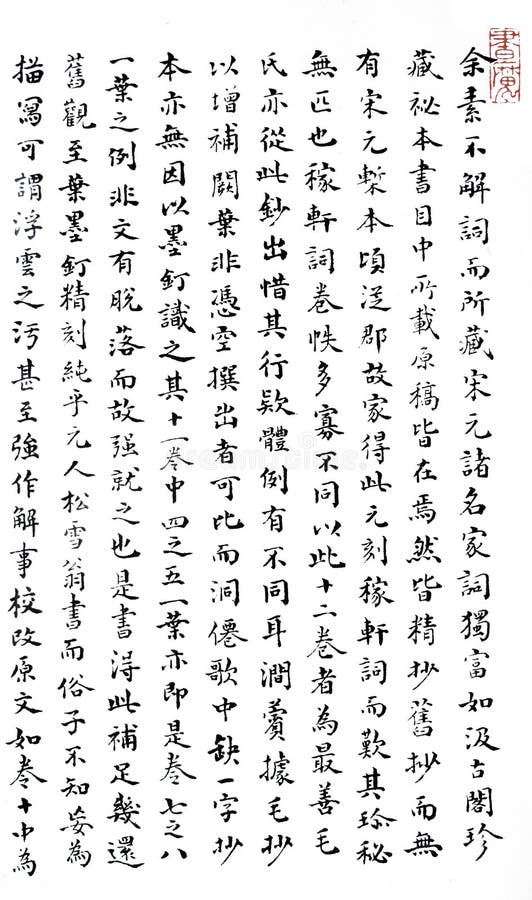 余素不解詞而所藏宋元諸名家詞獨富如汲古閣珍
藏祕本書目中所載原稿皆在焉然皆精抄舊抄而無
有宋元槧本頃從郡故家得此元刻稼軒詞而歎其珍秘
無匹也稼軒詞卷帙多寡不同以此十二卷者為最善毛
氏亦從此鈔出惜其行欵體例有不同耳澗薲據毛抄
以增補闕葉非憑空撰出者可比而洞僊歌中缺一字抄
本亦無因以墨釘識之其十一卷中四之五一葉亦即是卷七之八
一葉之例非文有脫落而故强就之也是書得此補足幾還
舊觀至葉墨釘精刻純乎元人松雪翁書而俗子不知妄為
描寫可謂浮雲之汚甚至強作解事校改原文如卷十中為
dreamstime